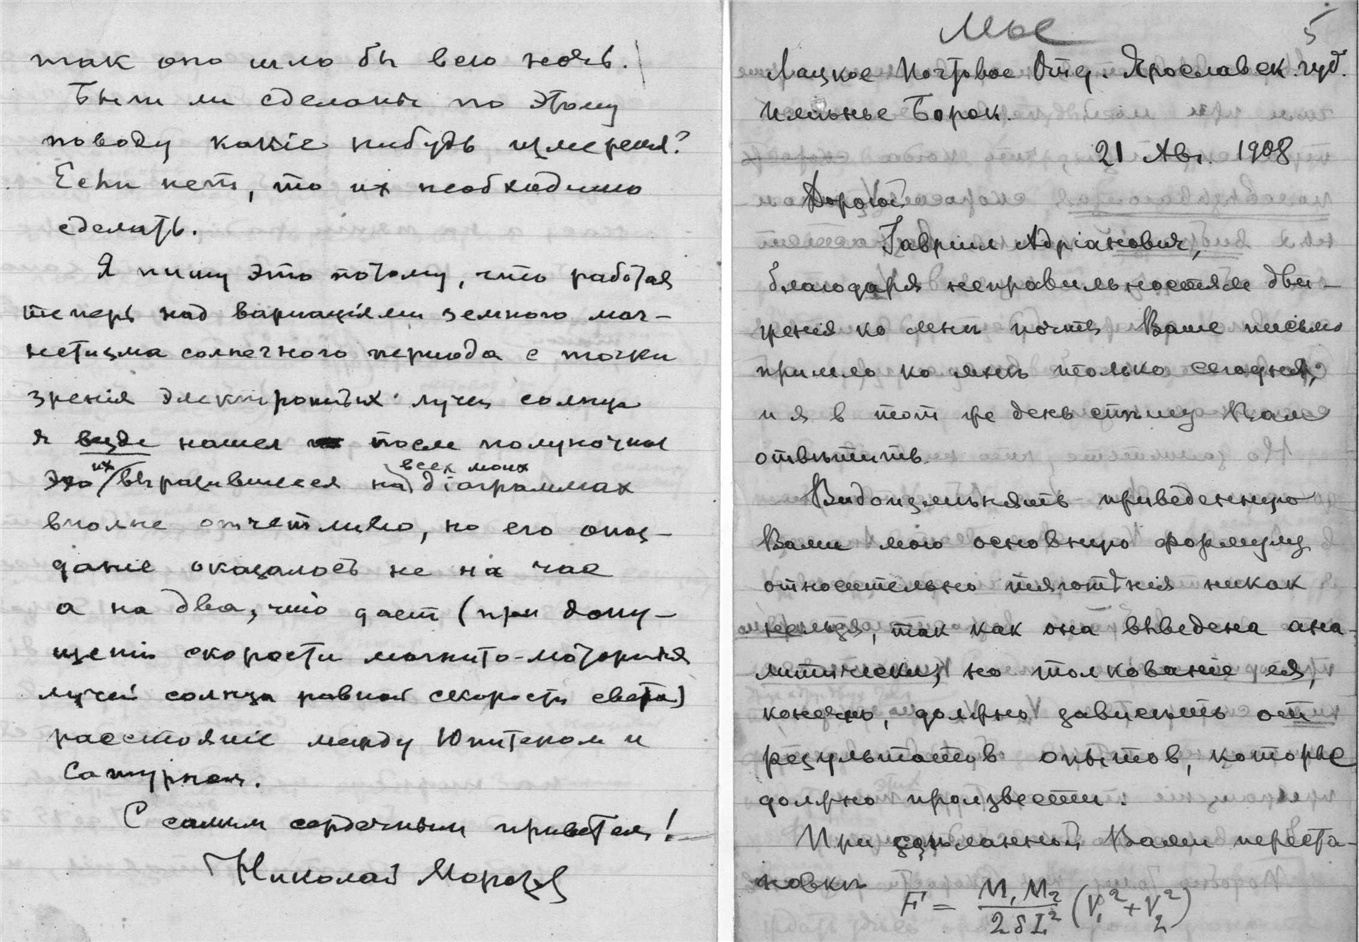 так оно шло бы всю ночь.
Были ли сделаны по этому
поводу какіе нибудь измеренія?
Если нет, то их необходимо
сделать.
Я пишу это потому, что работая
теперь над варіаціями земного маг-
нетизма солнечного періода с точки
зренія электронных лучей солнца
я виде нашел после полуночное
эхо их выразившееся на всех моих діаграммах
вполне отчетливо, но его опоз-
даніе оказалось не на час
а на два, что дает (при допу-
щеніи скорости магнито-моторных
лучей солнца равной скорости света)
разстояніе между Юпитером и
Сатурном.
С самым сердечным приветом!
Николай Морозов
5
Лацкое Почтовое Отд. Ярославск. губ.
Именье Борок.
21 Авг. 1908
Дорогой
Гавріил Адріанович,
благодаря неправильностям дви-
женія ко мне почты Ваше письмо
пришло ко мне только сегодня,
и я в тот же день спешу Вам
ответить.
Видоизменять приведенную
Вами мою основную формулу
относительно тяготенія никак
нельзя, так как она выведена ана-
литически, но толкованіе ея,
конечно, должно зависеть от
результатов опытов, которые
должно произвести.
При сделанной Вами переста-
новки
F = M₁ M₂ / 2δL² (V₁² + V₂²)